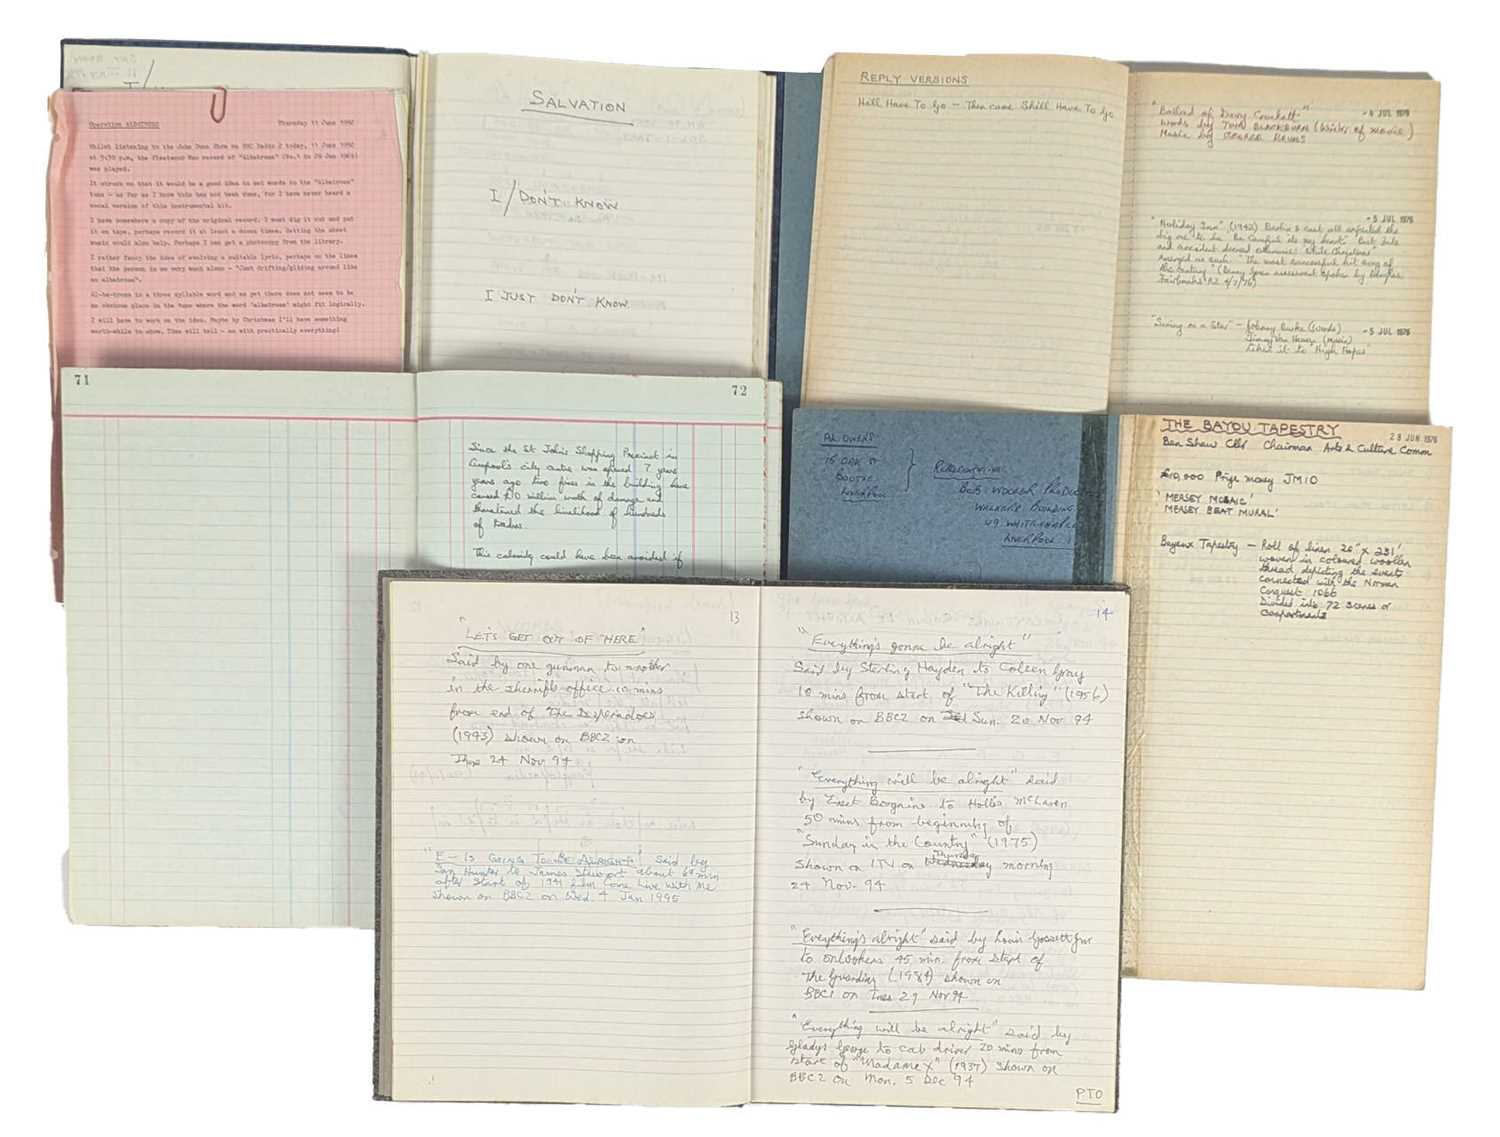 Operation ALBATROSS Thursday 11 June 1992
Whilst listening to the John Dunn Show on BBC Radio 2 today, 11 June 1992
at 5:30 p.m, the Fleetwood Mac record of "Albatross" (No.1 in 29 Jan 1969)
was played.
It struck me that it would be a good idea to set words to the "Albatross"
tune - as far as I know this has not been done, for I have never heard a
vocal version of this instrumental hit.
I have somewhere a copy of the original record. I must dig it out and put
it on tape, perhaps record it at least a dozen times. Getting the sheet
music would also help. Perhaps I can get a photocopy from the library.
I rather fancy the idea of evolving a suitable lyric, perhaps on the lines
that the person is so very much alone - "Just drifting/gliding around like
an albatross".
Al-ba-tross is a three syllable word and as yet there does not seem to be
an obvious place in the tune where the word 'albatross' might fit logically.
I will have to work on the idea. Maybe by Christmas I'll have something
worth-while to show. Time will tell - as with practically everything!
SALVATION
I / DON'T KNOW
I JUST DON'T KNOW
REPLY VERSIONS
He'll Have To Go - Then came She'll Have To Go
"Ballad of Davy Crockett" - 4 JUL 1976
words by TOM BLACKBURN (Writer of movie)
Music by GEORGE BRUNS
- 5 JUL 1976
"Holiday Inn" (1942) Berlin & cast all expected the
big one to be "Be Careful its my heart" But fate
and accident decreed otherwise: "White Christmas"
emerged as such "The most successful hit song of
the century" (Benny Green assessment spoken by Douglas
Fairbanks R2 4/7/76)
"Swing on a Star" - Johnny Burke (words) - 5 JUL 1976
Jimmy Van Heusen (music)
Liken it to "High Hopes"
71
72
Since the St John's Shopping Precinct in
Liverpool's city centre was opened 7 years
years ago two fires in the building have
caused £10 million worth of damage and
threatened the livelihood of hundreds
of traders.
This calamity could have been avoided if
AL OWENS
16 OAK ST
BOOTLE
LIVERPOOL
REPRESENTATION:
BOB WOOLER PRODUC
WALKER'S BUILDING
49 WHITECHAPEL
LIVERPOOL 1
THE BAYOU TAPESTRY 28 JUN 1976
Ben Shaw Cllr Chairman Arts & Culture Comm
£10,000 Prize money JM10
'MERSEY MOSAIC'
'MERSEY BEAT MURAL'
Bayeux Tapestry - Roll of linen 20" x 231'
woven in coloured woollen
thread depicting the events
connected with the Norman
Conquest 1066
Divided into 72 scenes or
compartments
13
"LET'S GET OUT OF HERE"
Said by one gunman to another
in the sherriff's office 10 mins
from end of The Desperadoes
(1943) shown on BBC2 on
Thurs 24 Nov 94
"E - IS GOING TO BE ALRIGHT" said by
Ian Hunter to James Stewart about 69 min
after start of 1941 film Come Live With Me
shown on BBC2 on Wed. 4 Jan 1995
14
"Everything's gonna be alright"
Said by Sterling Hayden to Coleen Gray
10 mins from start of "The Killing" (1956)
shown on BBC2 on Sun. 20 Nov 94
"Everything will be alright" said
by Ernest Borgnine to Hollis McLaren
50 mins from beginning of
"Sunday in the Country" (1975)
shown on ITV on Thursday morning
24 Nov. 94
"Everything's alright" said by Louis Gossett Jnr
to onlookers 45 min. from start of
The Guardian (1984) shown on
BBC1 on Tues 29 Nov 94
"Everything will be alright" said by
Gladys George to cab driver 20 mins from
start of "Madame X" (1937) shown on
BBC2 on Mon. 5 Dec 94
PTO